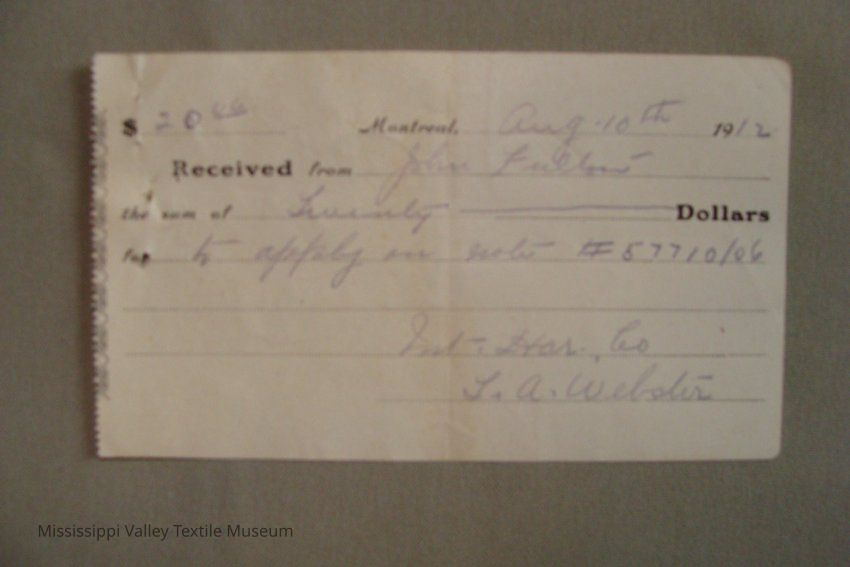 $ 20 00 Montreal, Aug. 10th 1912
Received from John Fulton
the sum of Twenty Dollars
for to apply on note # 57710/06
Int. Har. Co
A. Webster
Mississippi Valley Textile Museum